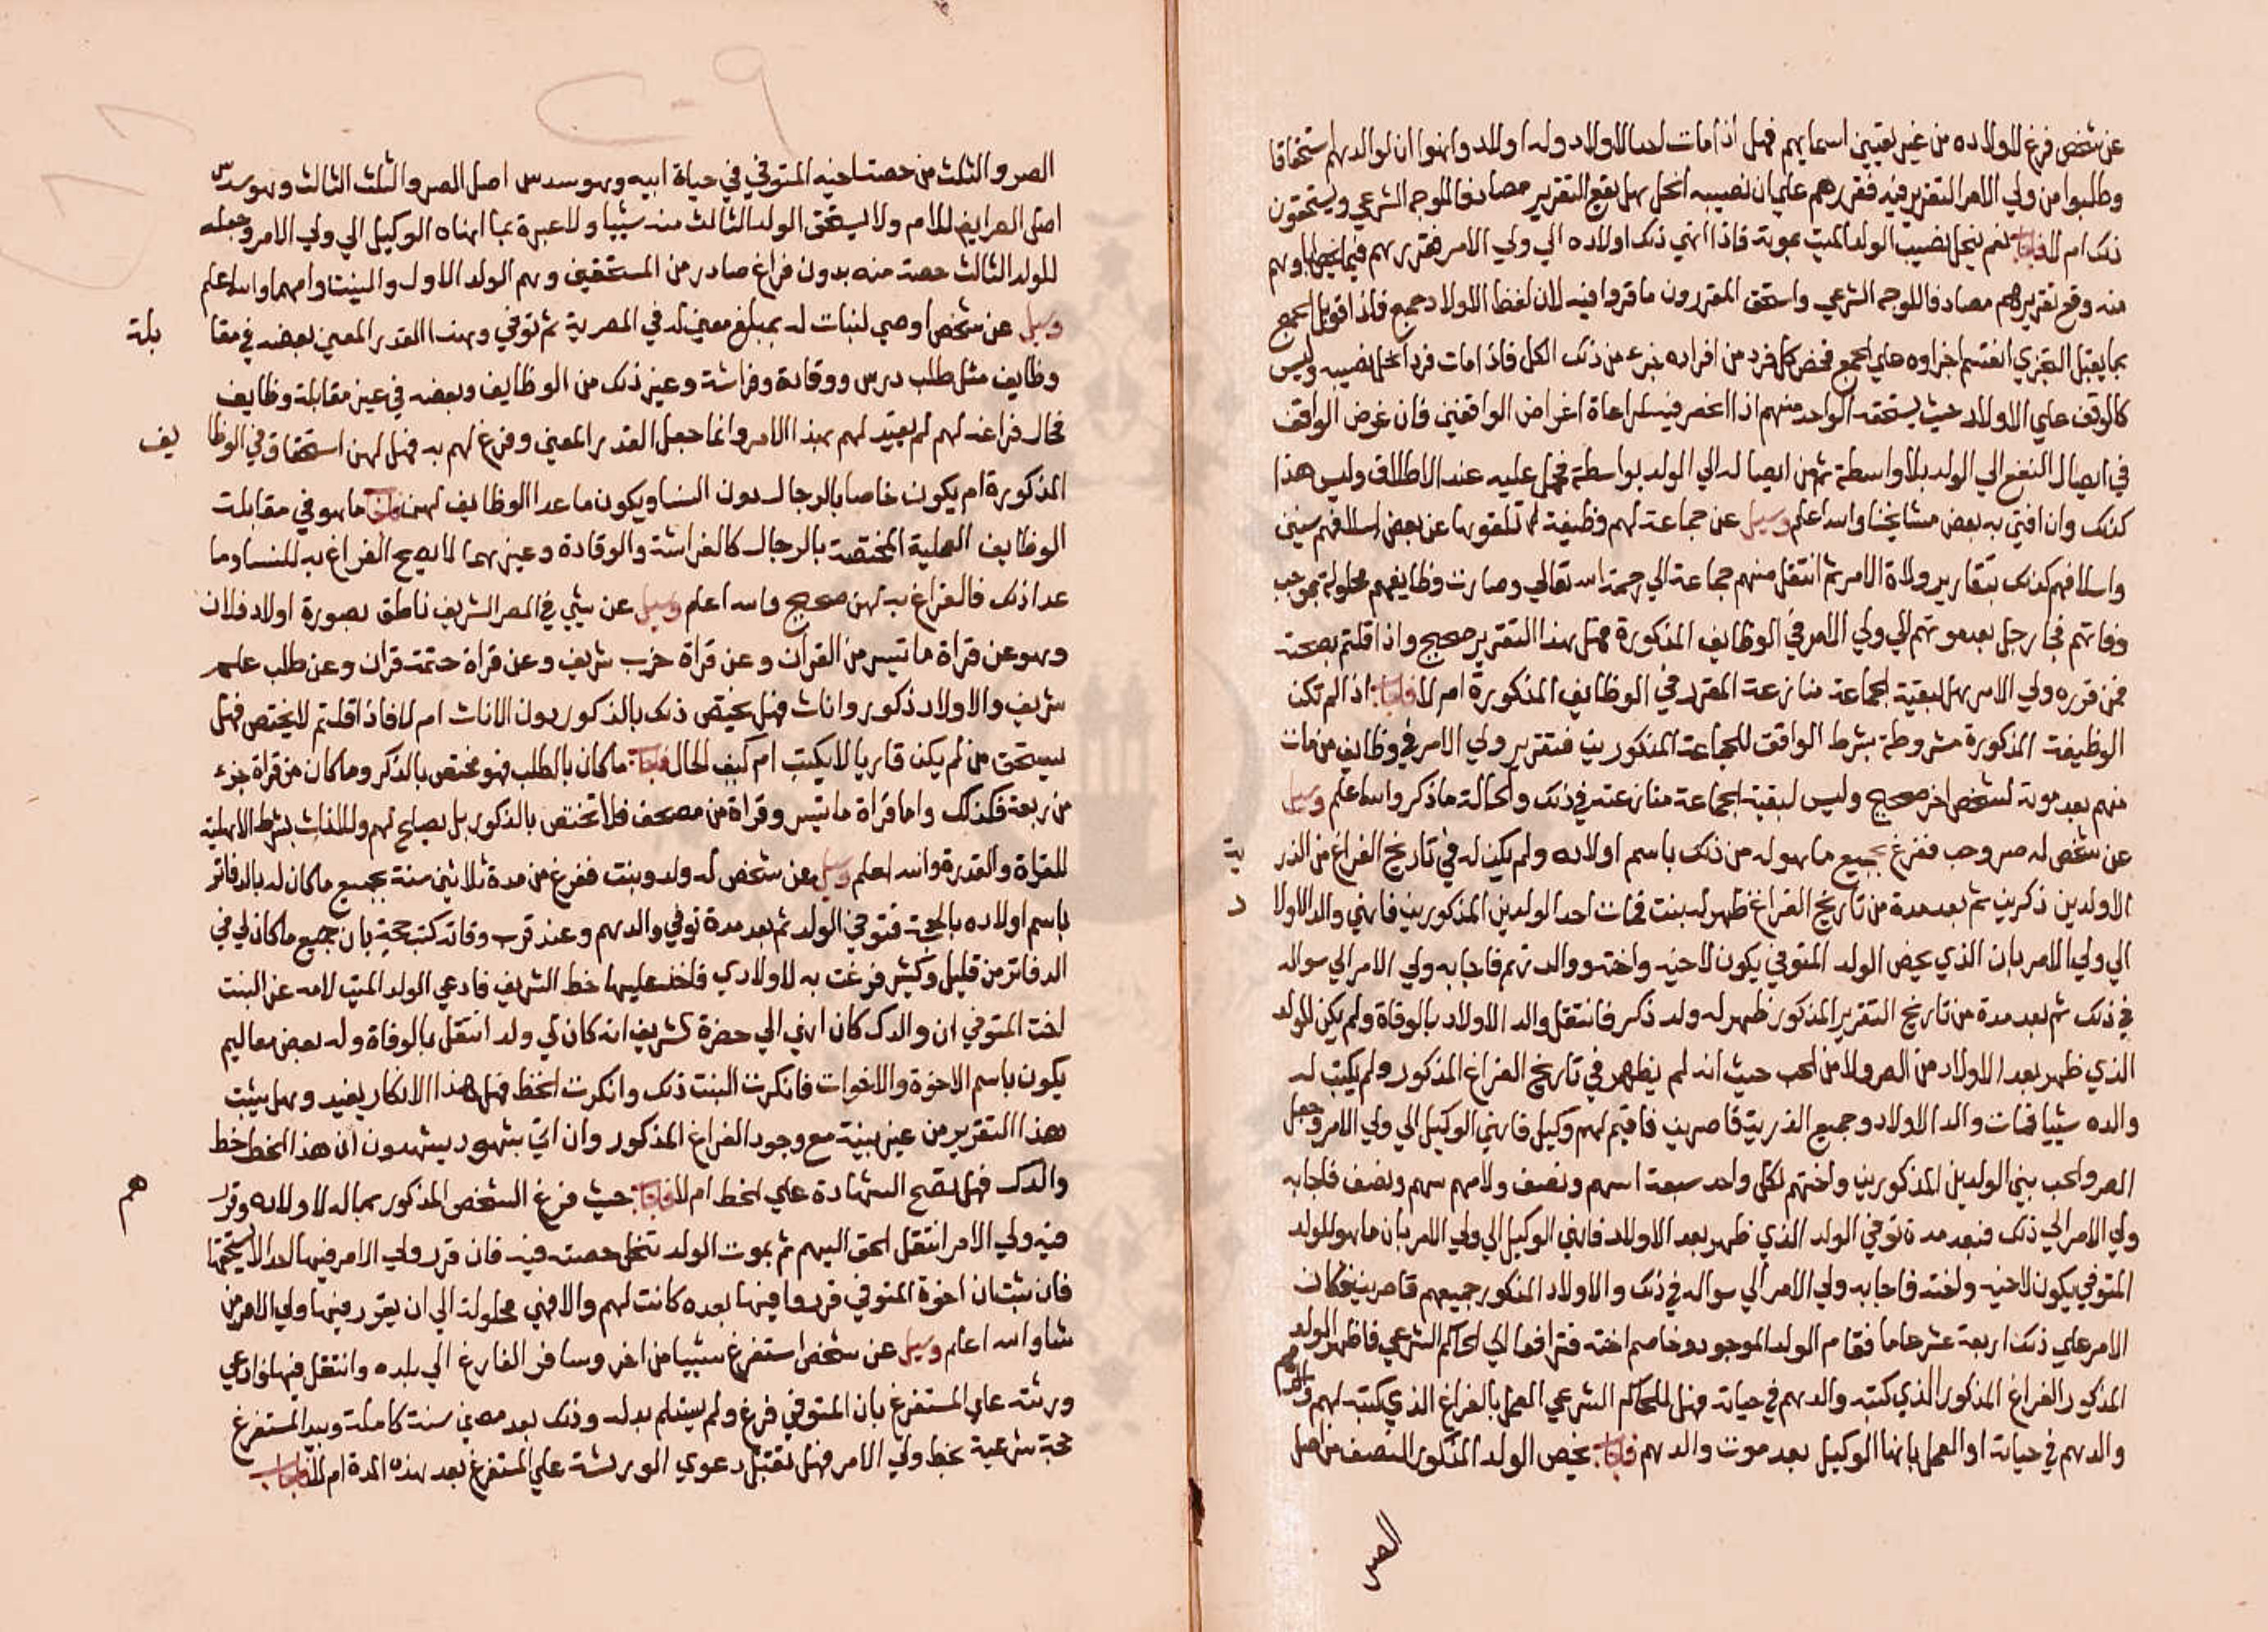 عن شخص فرغ لاولاده من غير تعيين اسمايهم فهل اذا مات احد الاولاد وله اولاد وانهوا ان لوالدهم استحقاقا
وطلبوا من ولي الامر التقرير فيه فقررهم علي ان نصيبه انحل هل يقع التقرير مصادفا للوجه الشرعي ويستحقون
ذلك ام لا فاجاب نعم ينحل نصيب الولد الميت بموته فاذا انهي ذلك اولاده الي ولي الامر فقررهم فيما يخص اباهم
منه وقع تقريرهم مصادفا للوجه الشرعي واستحق المقررون ما قرروا فيه لان لفظ الاولاد جمع فاذا قوبل الجمع
بما يقبل التجزي انقسم اجزاوه علي الجمع فخص كل فرد من افراده جزء من ذلك الكل فاذا مات فرد انحل نصيبه وليس
كالوقف علي الاولاد حيث يستحقه الواحد منهم اذا انحصر فيه لمراعاة اغراض الواقفين فان غرض الواقف
في ايصال النفع الي الولد بلا واسطة ثم من ايصاله الي الولد بواسطة فحمل عليه عند الاطلاق وليس هذا
كذلك وان افتي به بعض مشايخنا والله اعلم وسيل عن جماعة لهم وظيفة تلقوها عن بعض اسلافهم سنين
واسلافهم كذلك بتقارير ولاة الامر ثم انتقل منهم جماعة الي رحمة الله تعالي وصارت وظايفهم محلولة بموجب
وفاتهم فجا رجل بعد موتهم الي ولي الامر في الوظايف المذكورة فهل هذا التقرير صحيح واذا قلتم بصحته
ممن قرره ولي الامر هل لبقية الجماعة منازعة المقرر في الوظايف المذكورة ام لا فاجاب اذا لم تكن
الوظيفة المذكورة مشروطة بشرط الواقف للجماعة المذكورين فتقرير ولي الامر في وظايف من مات
منهم بعد موته لشخص اخر صحيح وليس لبقية الجماعة منازعته في ذلك والحالة ما ذكر والله اعلم وسيل
عن شخص له صر وحب ففرغ بجميع ما هو له من ذلك باسم اولاده ولم يكن له في تاريخ الفراغ من الذر ية
الا ولدين ذكرين ثم بعد مدة من تاريخ الفراغ ظهر له بنت فمات احد الولدين المذكورين فانهي والد الاولا د
الي ولي الامر بان الذي يخص الولد المتوفي يكون لاخيه واخته ووالدتهم فاجابه ولي الامر الي سواله
في ذلك ثم بعد مدة من تاريخ التقرير المذكور ظهر له ولد ذكر فانتقل والد الاولاد بالوفاة ولم يكن للولد
الذي ظهر بعد الاولاد من الصر ولا من الحب حيث انه لم يظهر في تاريخ الفراغ المذكور ولم يكتب له
والده شييا فمات والد الاولاد وجميع الذرية قاصرين فاقيم لهم وكيل فانهي الوكيل الي ولي الامر وجعل
الصر والحب بين الولدين المذكورين واختهم لكل واحد سبعة اسهم ونصف ولامهم سهم ونصف فاجابه
ولي الامر الي ذلك فبعد مدة توفي الولد الذي ظهر بعد الاولاد فانهي الوكيل الي ولي الامر بان ما هو للولد
المتوفي يكون لاخيه ولاخته فاجابه ولي الامر الي سواله في ذلك والاولاد المذكور جميعهم قاصرين فكان
الامر علي ذلك اربعة عشر عاما فقام الولد الموجود وخاصم اخته فترافعا الي الحاكم الشرعي فاظهر الولد
المذكور الفراغ المذكور الذي كتبه والدهم في حياته فهل للحاكم الشرعي العمل بالفراغ الذي كتبه لهم
والدهم في حياته او العمل بانها الوكيل بعد موت والدهم فاجاب يخص الولد المذكور النصف من اصل
الصر
الصر والثلث من حصة اخيه المتوفي في حياة ابيه وهو سدس اصل الصر والثلث الثالث وهو سدس
اصل الصر ايضا للام ولا يستحق الولد الثالث منه شييا ولا عبرة بما انهاه الوكيل الي ولي الامر وجعله
للولد الثالث حصة منه بدون فراغ صادر من المستحقين وهم الولد الاول والبنت وامهما والله اعلم
وسيل عن شخص اوصي لبنات له بمبلغ معين له في المصرية ثم توفي وهذا القدر المعين بعضه في مقا بلة
وظايف مثل طلب درس ووقادة وفراشة وغير ذلك من الوظايف وبعضه في غير مقابلة وظايف
فحال فراغه لهم لم يقيد لهم بهذا الامر وانما جعل القدر المعين وفرغ لهم به فهل لهن استحقاق في الوظا يف
المذكورة ام يكون خاصا بالرجال دون النسا ويكون ماعدا الوظايف لهن فاجاب ما هو في مقابلة
الوظايف العملية المختصة بالرجال كالفراشة والوقادة وغيرهما لا يصح الفراغ به للنسا وما
عدا ذلك فالفراغ به لهن صحيح والله اعلم وسيل عن شيي في الصر الشريف ناطق بصورة اولاد فلان
وهو عن قراة ما تيسر من القران وعن قراة حزب شريف وعن قراة ختمة قران وعن طلب علم
شريف والاولاد ذكور واناث فهل يختص ذلك بالذكور دون الاناث ام لا فاذا قلتم لا يختص فهل
يستحق من لم يكن قاريا لا يكتب ام كيف الحال فاجاب ما كان بالطلب فهو مختص بالذكر وما كان من قراة جزء
من ربعة فكذلك واما قراة ما تيسر وقراة من مصحف فلا تختص بالذكور بل يصلح لهم وللاناث بشرط الاهلية
للقراة والقدرة والله اعلم وسيل عن شخص له ولد وبنت ففرغ من مدة ثلاثين سنة بجميع ما كان له بالدفاتر
باسم اولاده بالحجة فتوفي الولد ثم بعد مدة توفي والدهم وعند قرب وفاته كتب حجة بان جميع ما كان لي في
الدفاتر من قليل وكثير فرغت به لاولادي فاخذ عليها خط الشريف فادعي الولد الميت لامه عن البنت
اخت المتوفي ان والدك كان انهي الي حضرة الشريف انه كان لي ولد انتقل بالوفاة وله بعض معاليم
يكون باسم الاخوة والاخوات فانكرت البنت ذلك وانكرت الخط فهل هذا الانكار يفيد وهل يثبت
هذا التقرير من غير بينة مع وجود الفراغ المذكور وان اتي بشهود يشهدون ان هذا الخط خط
والدك فهل تصح الشهادة علي الخط ام لا فاجاب حيث فرغ الشخص المذكور بماله لاولاده وقرر هم
فيه ولي الامر انتقل الحق اليهم ثم بموت الولد تنحل حصته فيه فان قرر ولي الامر فيها احدا استحقها
فان ثبت ان اخوة المتوفي قرروا فيها بعده كانت لهم والا فهي محلولة الي ان يقرر فيها ولي الامر من
شا والله اعلم وسيل عن شخص استفرغ شييا من اخر وسافر الفارغ الي بلده وانتقل فيها وادعي
ورثته علي المستفرغ بان المتوفي فرغ ولم يستلم بدله وذلك بعد مضي سنة كاملة وبيد المستفرغ
حجة شرعية بخط ولي الامر فهل تقبل دعوي الورثة علي المستفرغ بعد هذه المدة ام لا فاجاب